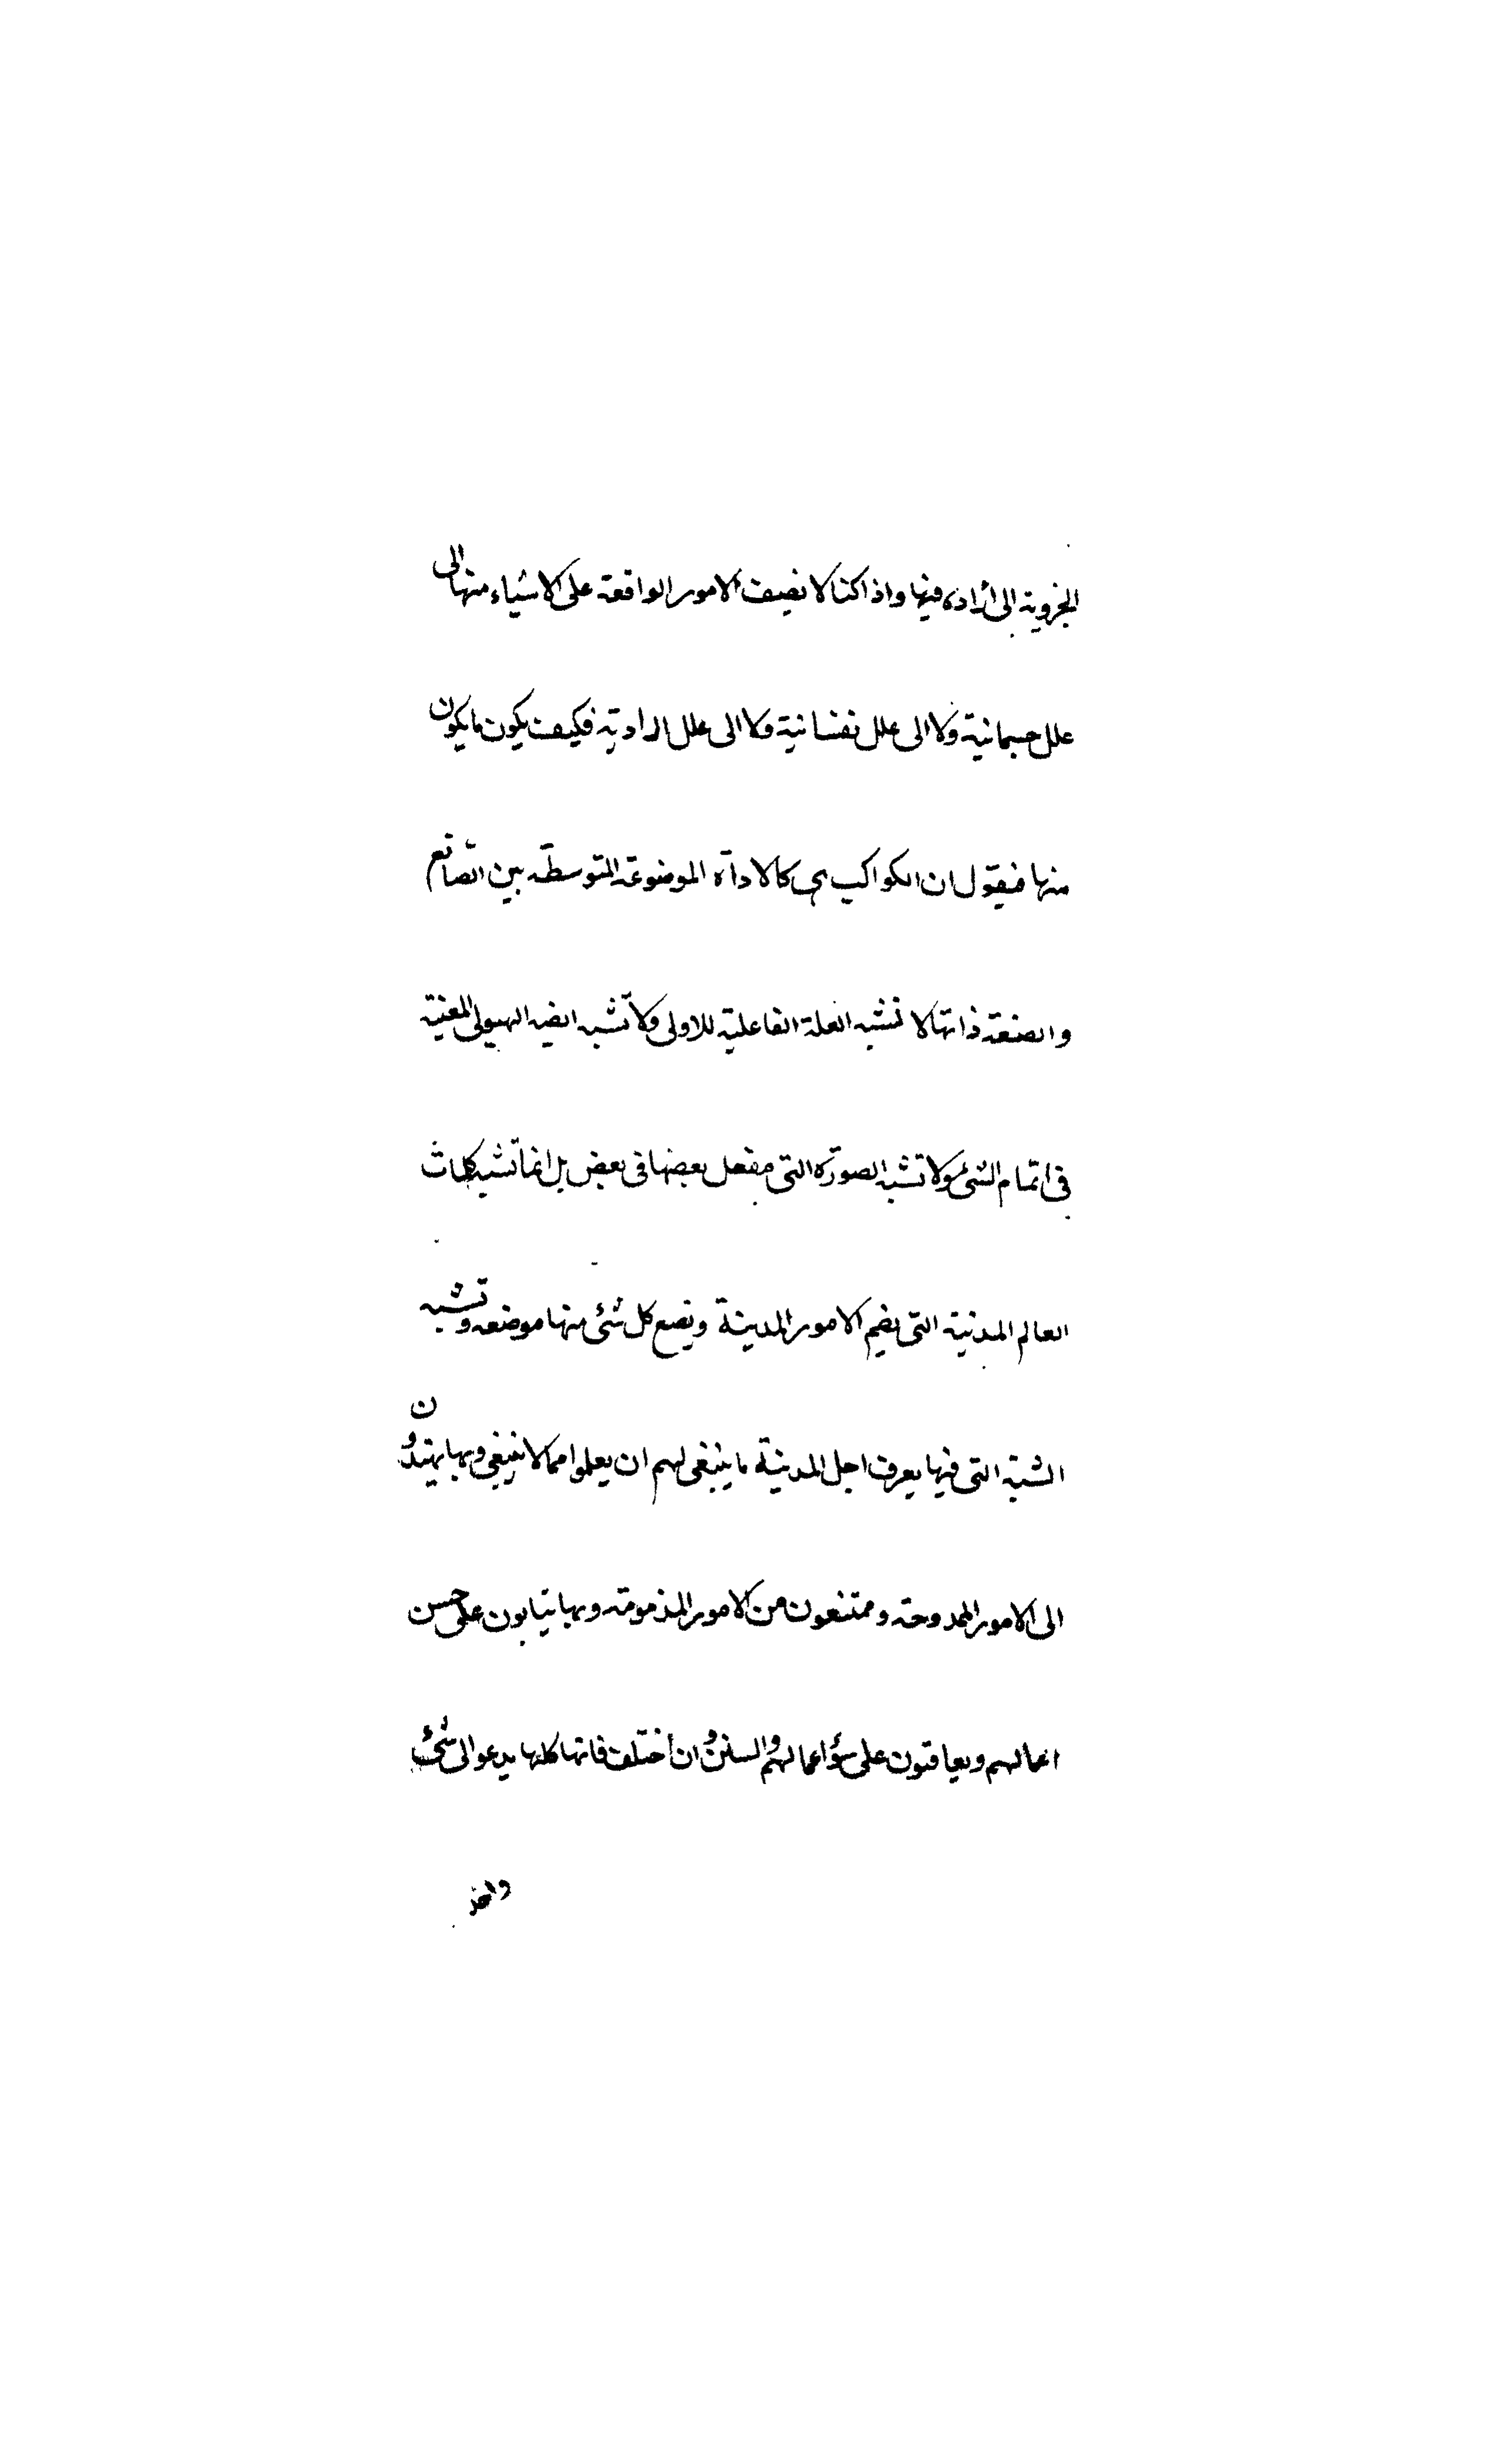 الجزوية الى أرادة فيها واذا كنا لا نضيف الامور الواقعة على الاشياء منها الى
علل جسمانية ولا الى علل نفسانية ولا الى علل ارادية فكيف يكون ما يكون
منها فنقول ان الكواكب هى كالاداة الموضوعة المتوسطة بين الصانع
والصنعة ذاتها لا تشبه العلة الفاعلية للاولى ولا تشبه ايضه الهيولى المعنية
فى اتمام الشئ ولا تشبه الصورة التى مفعل بعضها فى بعض بل انما تشبه كلمات
العالم المدنية التى يضم الامور المدينة ويضع كل شئ منها موضعه وتشبه
الشبة التى فيها يعرف اجل المدينة ما ينبغى لهم ان يعلموا مما لا ينبغى وبها يهتدون
الى الامور الممدوحة وممتنعون من الامور المذمومة وبها يثابون على حسن
اعمالهم ويعاقبون على سؤ اعمالهم والسنن وان أختلف فانها كلها يدعو الى شئ
واحد